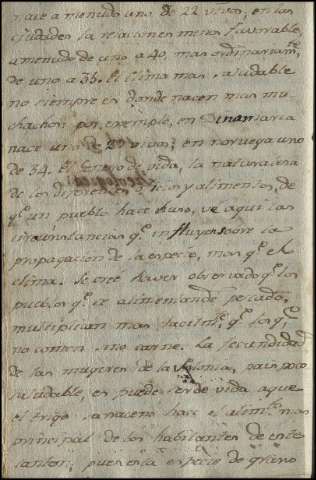 nace a menudo uno de 22 vivos, en las
ciudades la relacion es menos favorable,
a menudo de uno a 40, mas ordinariam.te
de uno a 35. El clima mas saludable
no siempre es donde nacen mas mu-
chachos por exemplo, en Dinamarca
nace uno 2 vivos; en noruega uno
de 34. El genero de vida, la naturaleza
de los diferentes oficios y alimentos, de
q.e un pueblo hace el uso, ve aqui las
circunstancias q.e influyen sobre la
propagacion de la especie, mas q.e el
clima. Se creé haver observado q.e los
pueblos q.e se alimentan de pescado,
multiplican mas facilm.te q.e los q.e
no comen sino carne. La fecundidad
de las mugeres de la Polonia, pais poco
saludable, es puede ser de vida a que
el trigo sarraceno hace el alim.to mas
principal de los habitantes de este
canton; pues esta especie de grano